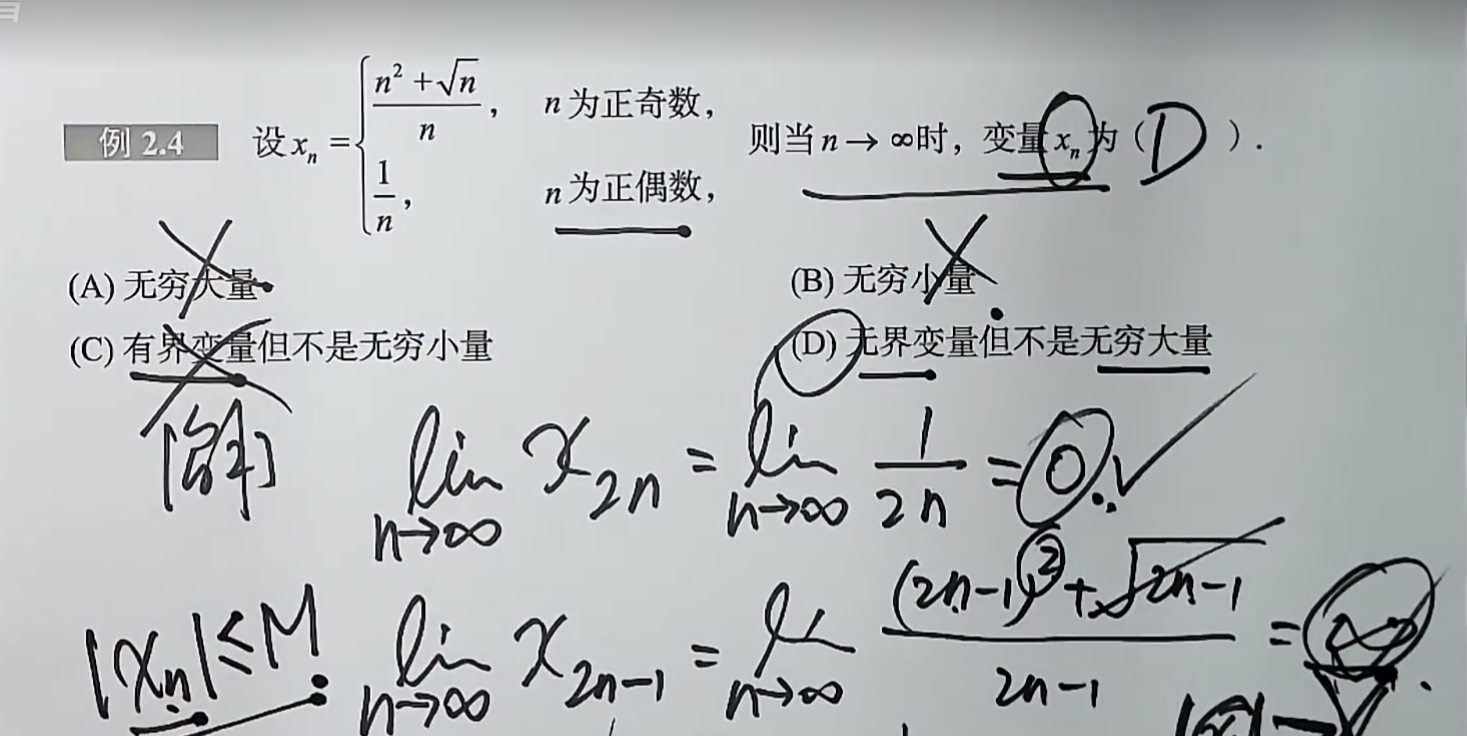 例 2.4 设 xₙ = { (n² + √n)/n, n 为正奇数, 则当 n → ∞ 时, 变量 xₙ 为 ( D ).
1/n, n 为正偶数,
(A) 无穷大量 (B) 无穷小量
(C) 有界变量但不是无穷小量 (D) 无界变量但不是无穷大量
[解] lim n→∞ x₂ₙ = lim n→∞ 1/2n = 0.
|xₙ| ≤ M lim n→∞ x₂ₙ₋₁ = lim n→∞ ((2n-1)² + √2n-1)/(2n-1) = ∞.